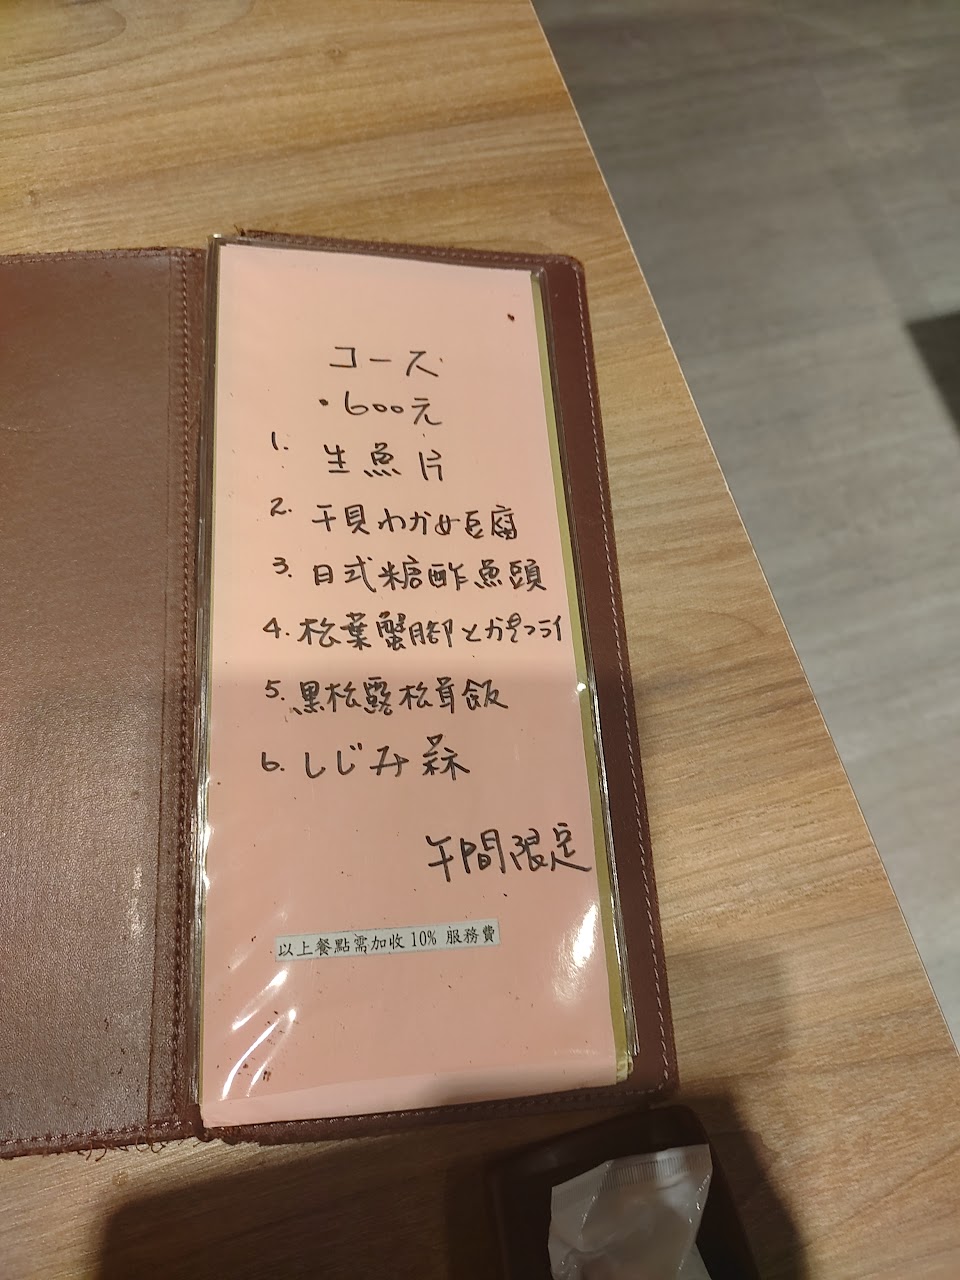 コース
・600元
1. 生魚片
2. 干貝わかめ豆腐
3. 日式糖酢魚頭
4. 松葉蟹腳とかきフライ
5. 黑松露松茸飯
6. しじみ
午間限定
以上餐點需加收10% 服務費